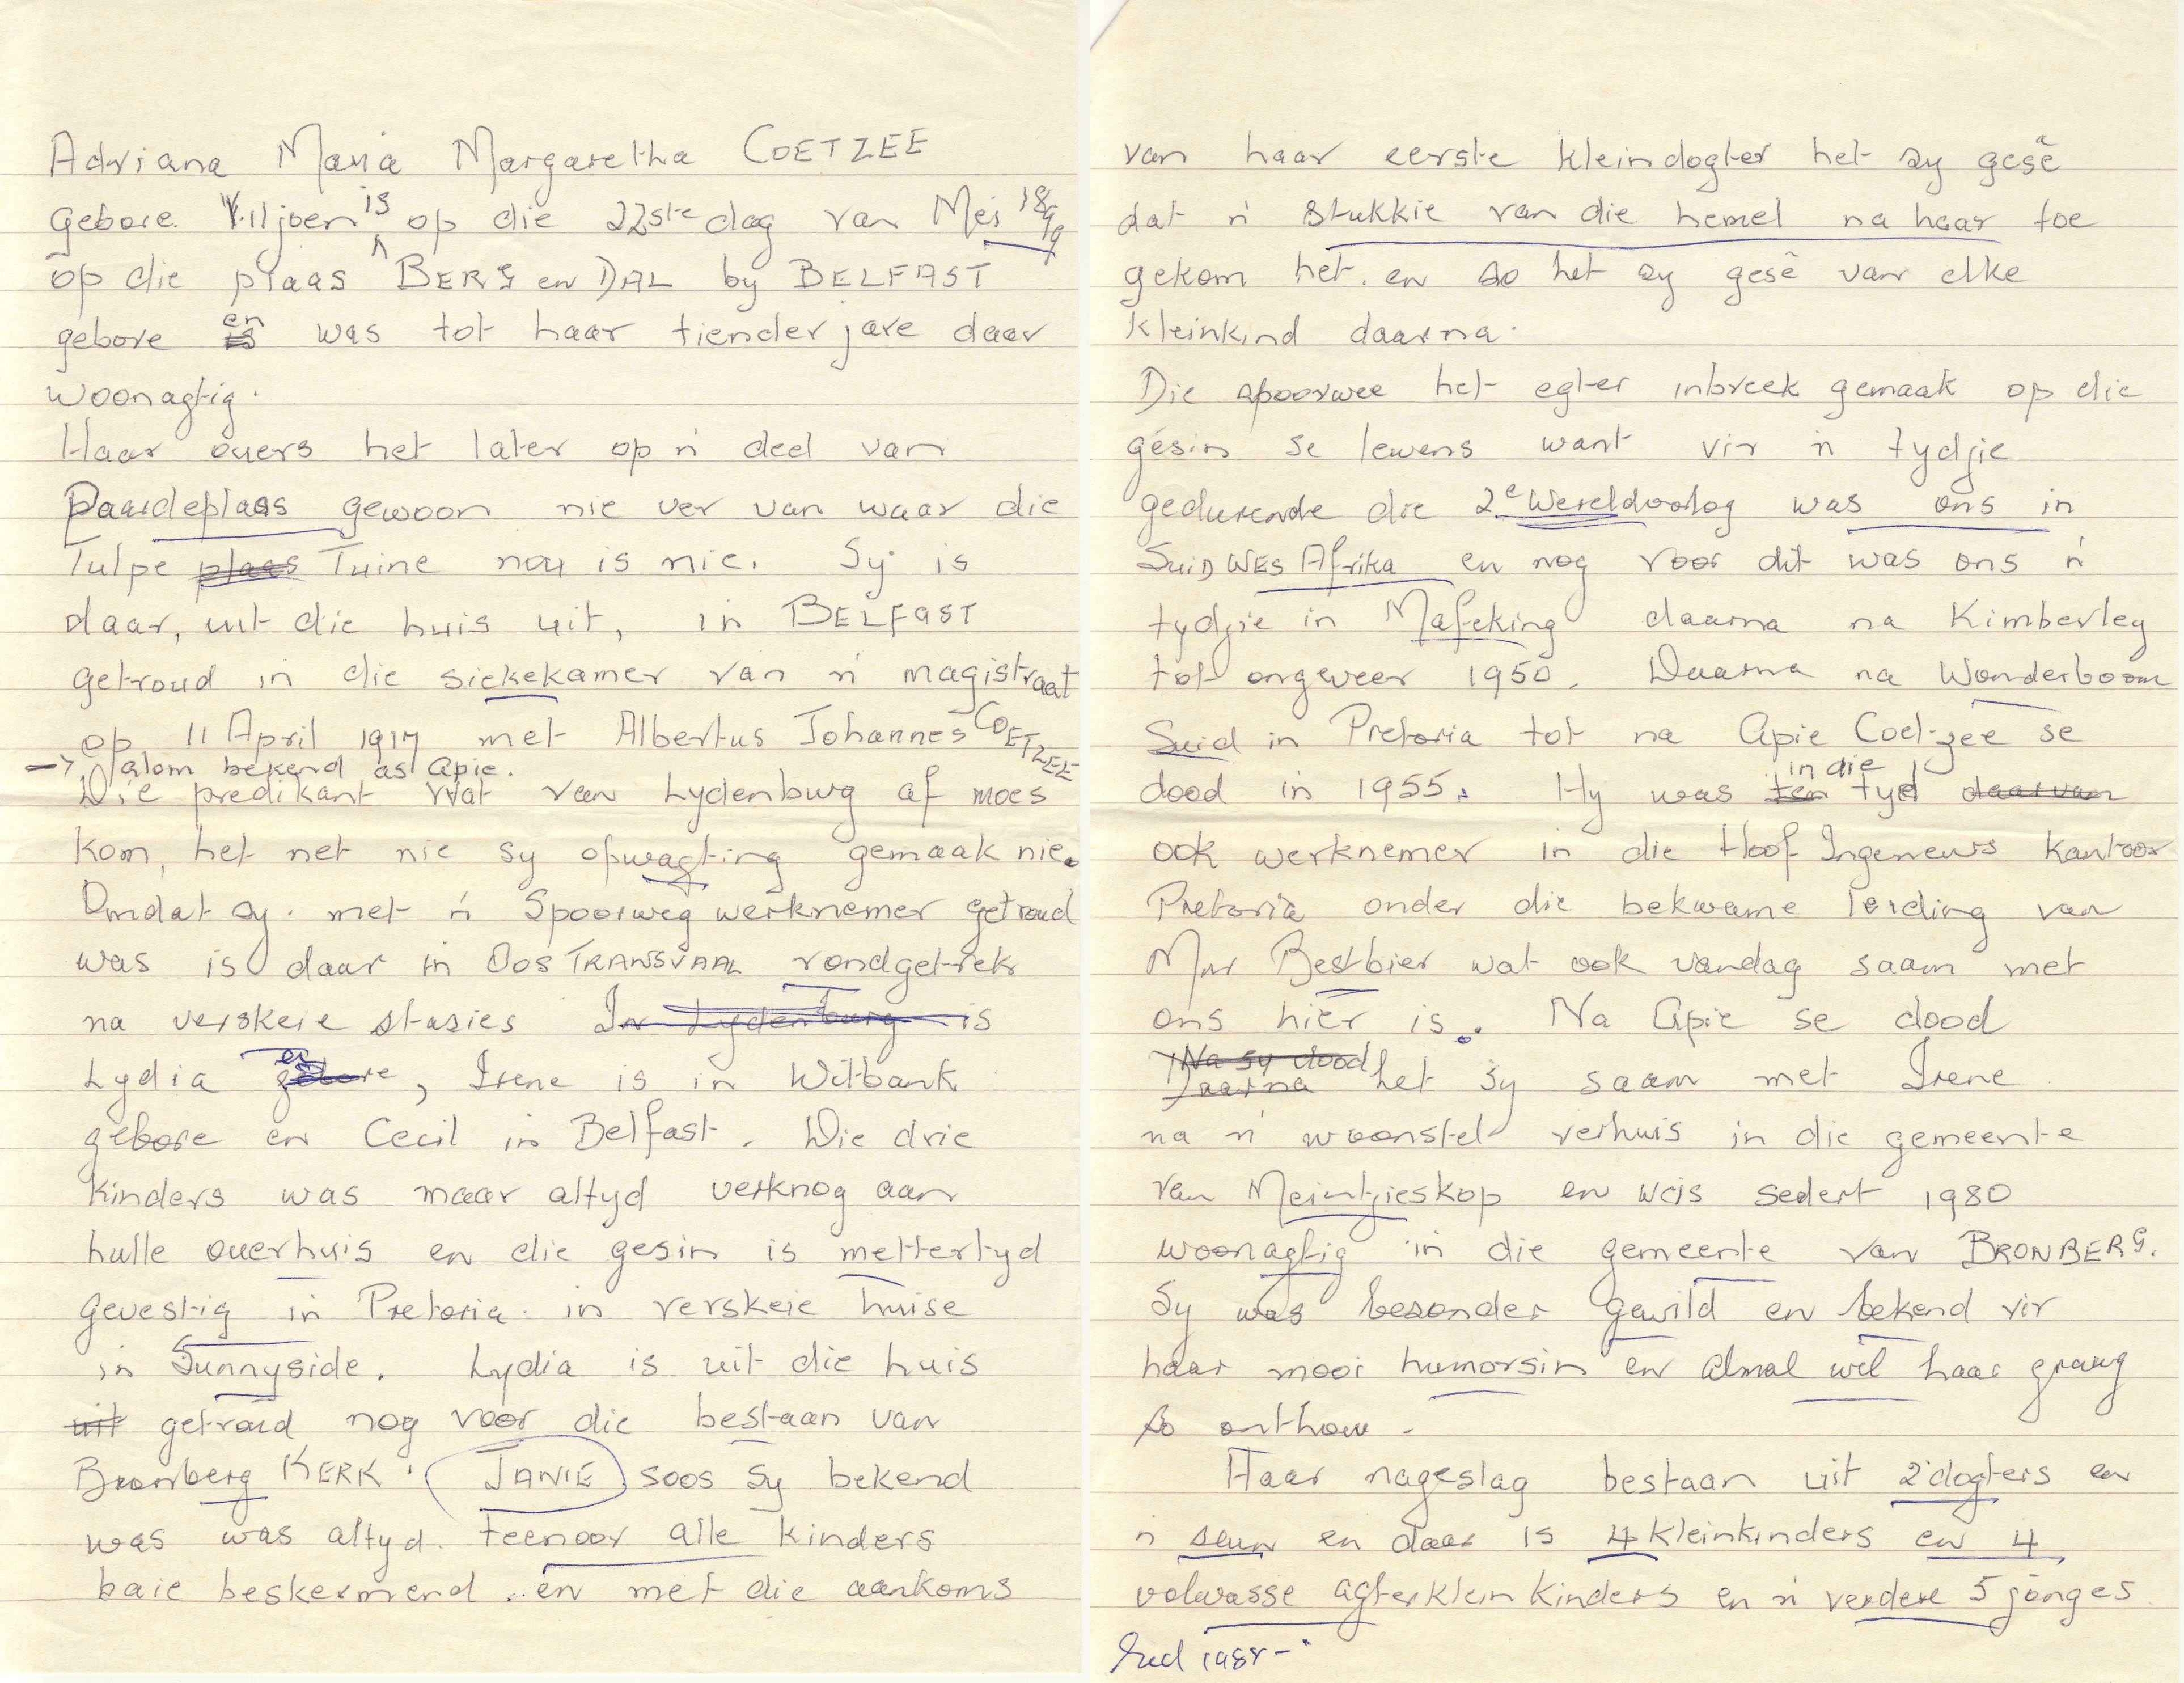 Adriana Maria Margaretha COETZEE
gebore Viljoen is op die 22ste dag van Mei 1899
op die plaas BERG en DAL by BELFAST
gebore en was tot haar tienderjare daar
woonagtig.
Haar ouers het later op 'n deel van
Paardeplaas gewoon nie ver van waar die
Tulpe plaas Tuine nou is nie. Sy is
daar, uit die huis uit, in BELFAST
getroud in die siekekamer van 'n magistraat
op 11 April 1917 met Albertus Johannes COETZEE
→ alom bekend as Apie.
Die predikant wat van Lydenburg af moes
kom, het net nie sy opwagting gemaak nie.
Omdat sy met 'n Spoorweg werknemer getroud
was is daar in OOS TRANSVAAL rondgetrek
na verskeie stasies In Lydenburg is
Lydia en gebore, Irene is in Witbank
gebore en Cecil in Belfast. Die drie
kinders was maar altyd verknog aan
hulle ouerhuis en die gesin is mettertyd
gevestig in Pretoria in verskeie huise
in Sunnyside. Lydia is uit die huis
uit getroud nog voor die bestaan van
Bronberg KERK. JANIE soos sy bekend
was was altyd teenoor alle kinders
baie beskermend .. en met die aankoms
van haar eerste kleindogter het sy gesê
dat 'n stukkie van die hemel na haar toe
gekom het. en so het sy gesê van elke
kleinkind daarna.
Die spoorwee het egter inbreek gemaak op die
gesin se lewens want vir 'n tydjie
gedurende die 2e Wereldoorlog was ons in
SUID WES Afrika en nog voor dit was ons 'n
tydjie in Mafeking daarna na Kimberley
tot ongeveer 1950. Daarna na Wonderboom
Suid in Pretoria tot na Apie Coetzee se
dood in 1955. Hy was ten in die tyd daarvan
ook werknemer in die Hoof Ingenieurs kantoor
Pretoria onder die bekwame leiding van
Mnr Bestbier wat ook vandag saam met
ons hier is. Na Apie se dood
Na sy dood
Daarna het sy saam met Irene
na 'n woonstel verhuis in die gemeente
van Meintjieskop en was sedert 1980
woonagtig in die gemeente van BRONBERG.
Sy was besonder gewild en bekend vir
haar mooi humorsin en almal wil haar graag
so onthou.
Haar nageslag bestaan uit 2 dogters en
'n seun en daar is 4 kleinkinders en 4
volwasse agterkleinkinders en 'n verdere 5 jonges